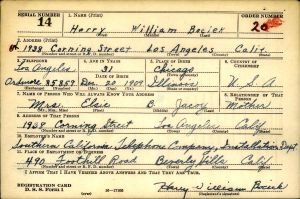 SERIAL NUMBER
14
1. NAME (Print)
ORDER NUMBER
Harry William Bociek
20
2. ADDRESS (Print)
1938 Corning Street Los Angeles Calif.
3. TELEPHONE
4. AGE IN YEARS
5. PLACE OF BIRTH
6. COUNTRY OF CITIZENSHIP
Los Angeles
31
Chicago
DATE OF BIRTH
Ardmore 85859 Dec. 20 1909 Illinois U.S.A.
7. NAME OF PERSON WHO WILL ALWAYS KNOW YOUR ADDRESS
8. RELATIONSHIP OF THAT PERSON
Mrs. Elsie B. Jacoy Mother
9. ADDRESS OF THAT PERSON
1938 Corning Street Los Angeles Calif.
10. EMPLOYER'S NAME
Southern California Telephone Company, Installation Dept
11. PLACE OF EMPLOYMENT OR BUSINESS
490 Foothill Road Beverly Hills Calif.
I AFFIRM THAT I HAVE VERIFIED ABOVE ANSWERS AND THAT THEY ARE TRUE.
REGISTRATION CARD
D. S. S. Form 1
Harry William Bociek